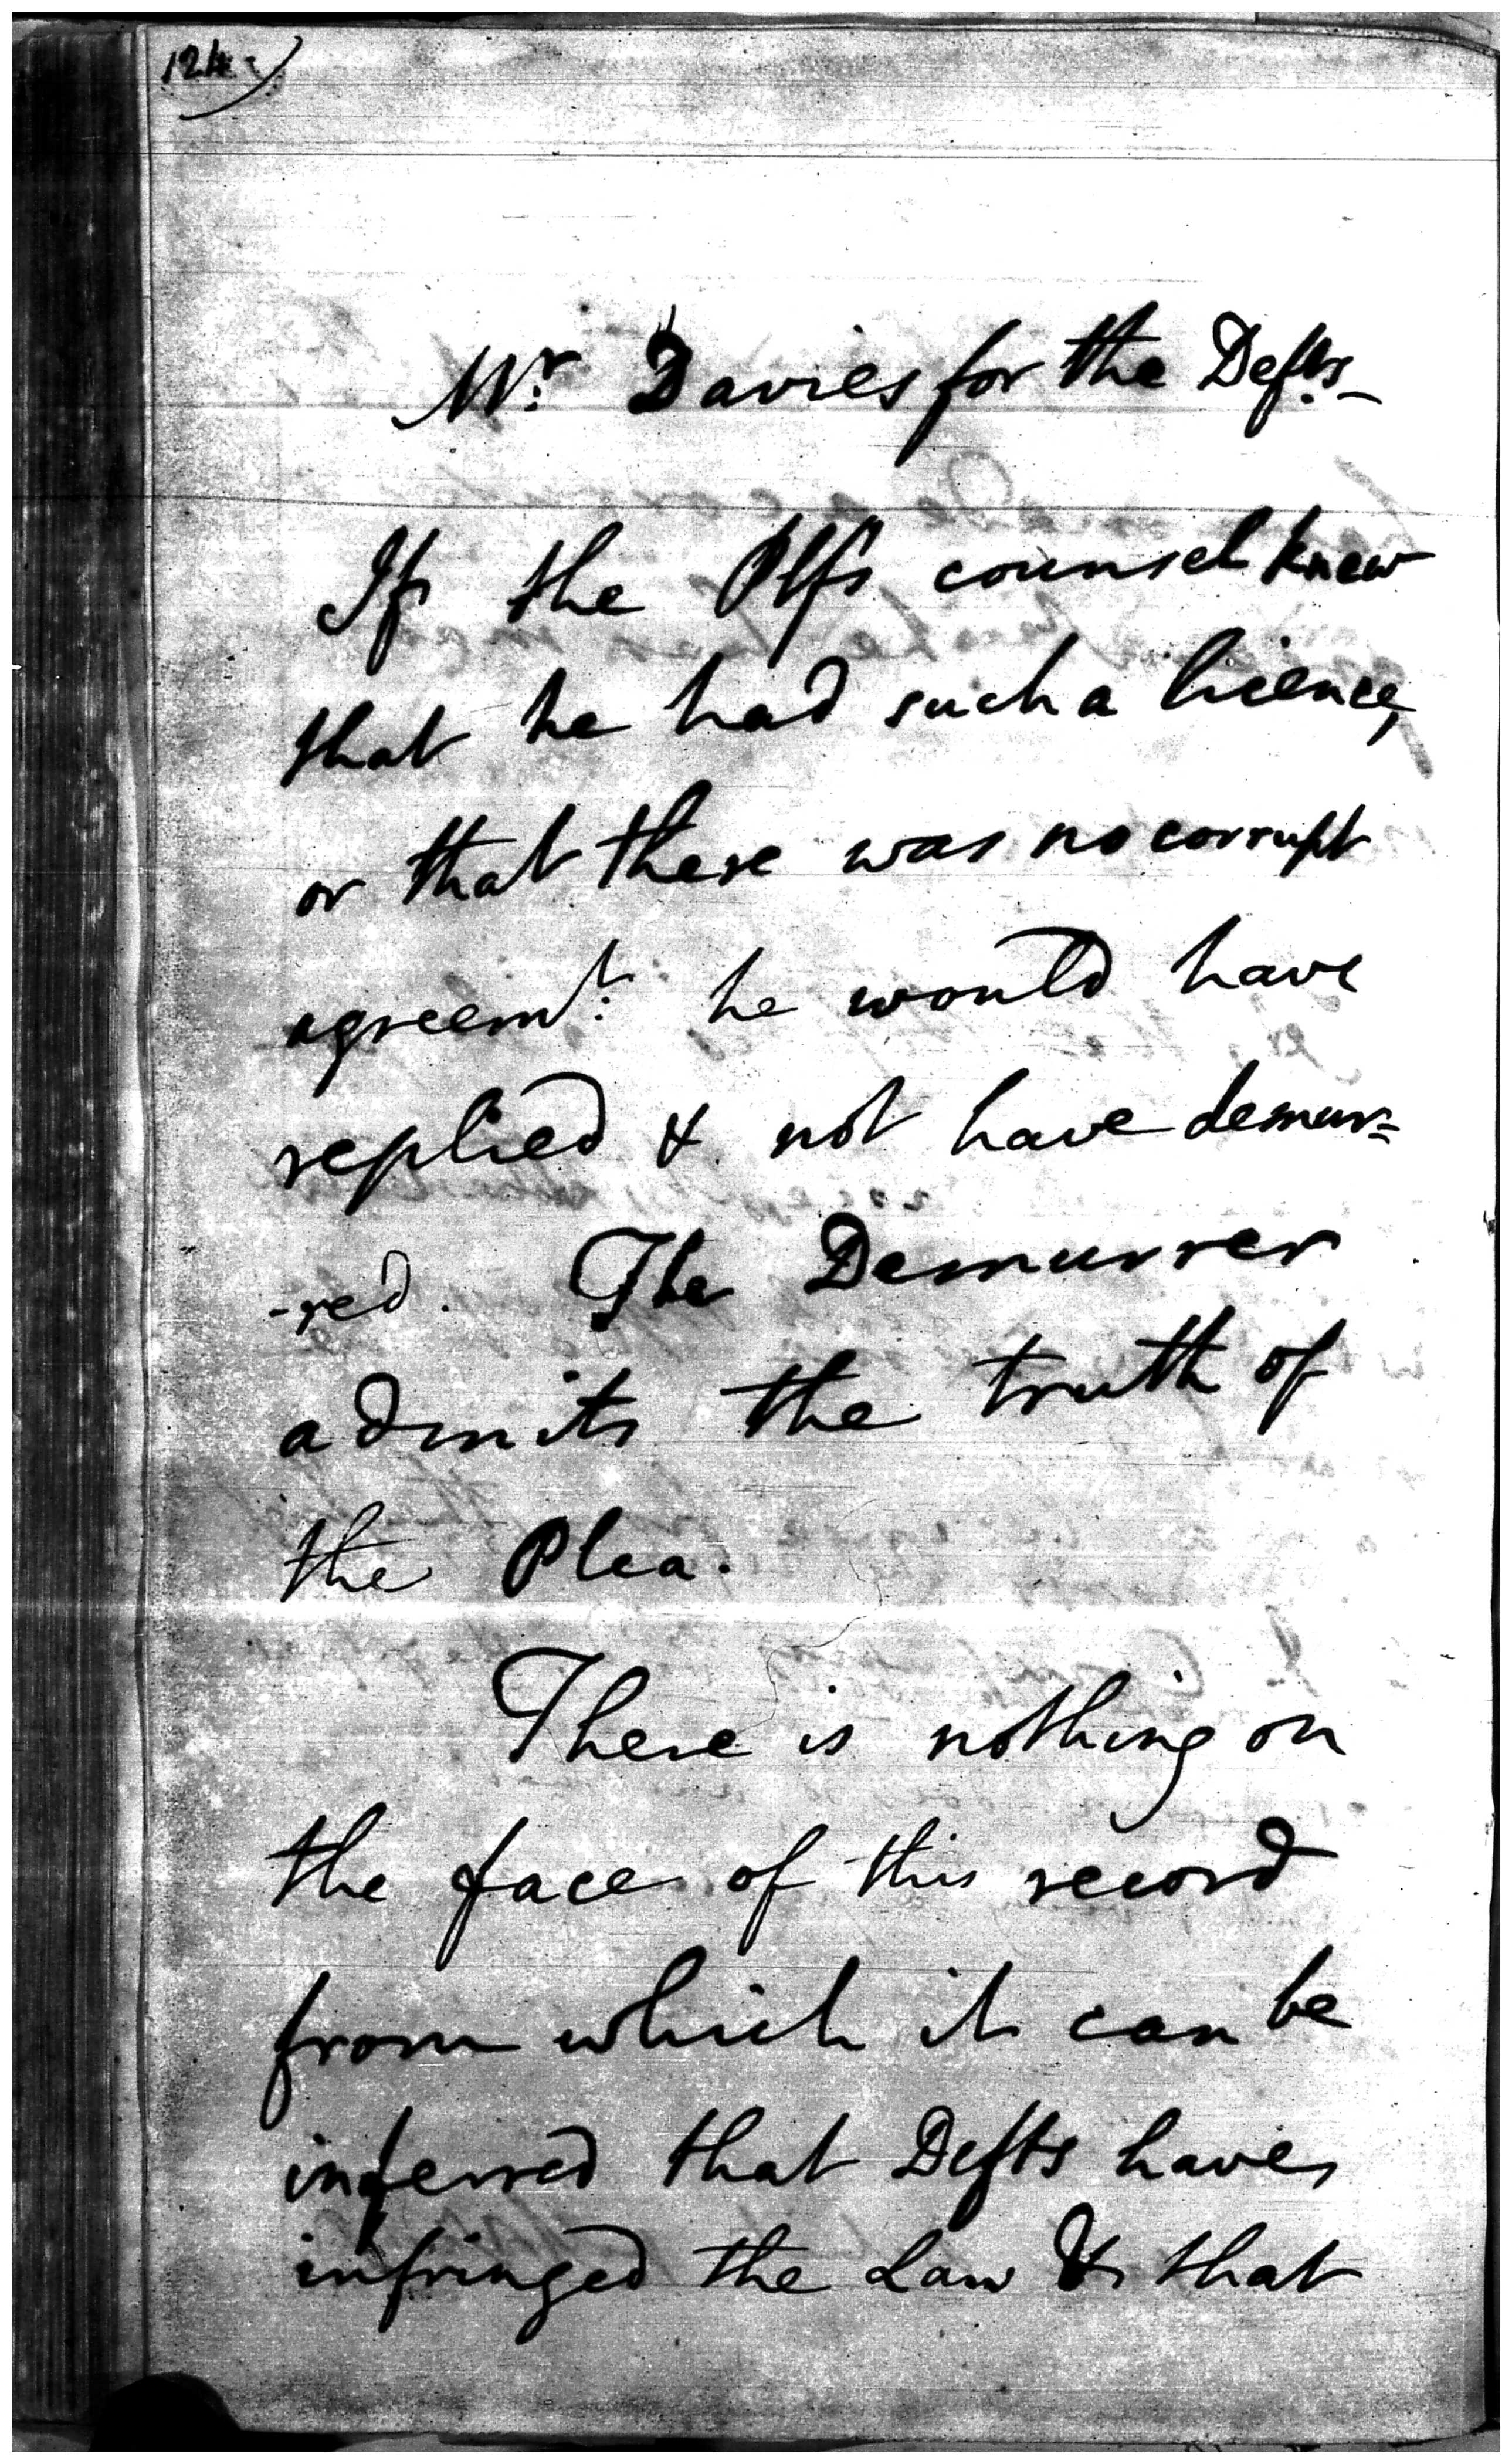 124
Mr. Davies for the Defts.
If the Plfs counsel knew
that he had such a licence,
or that there was no corrupt
agreemt. he would have
replied & not have demur=
-red. The Demurrer
admits the truth of
the Plea.
There is nothing on
the face of this record
from which it can be
inferred that Defts have
infringed the Law & that